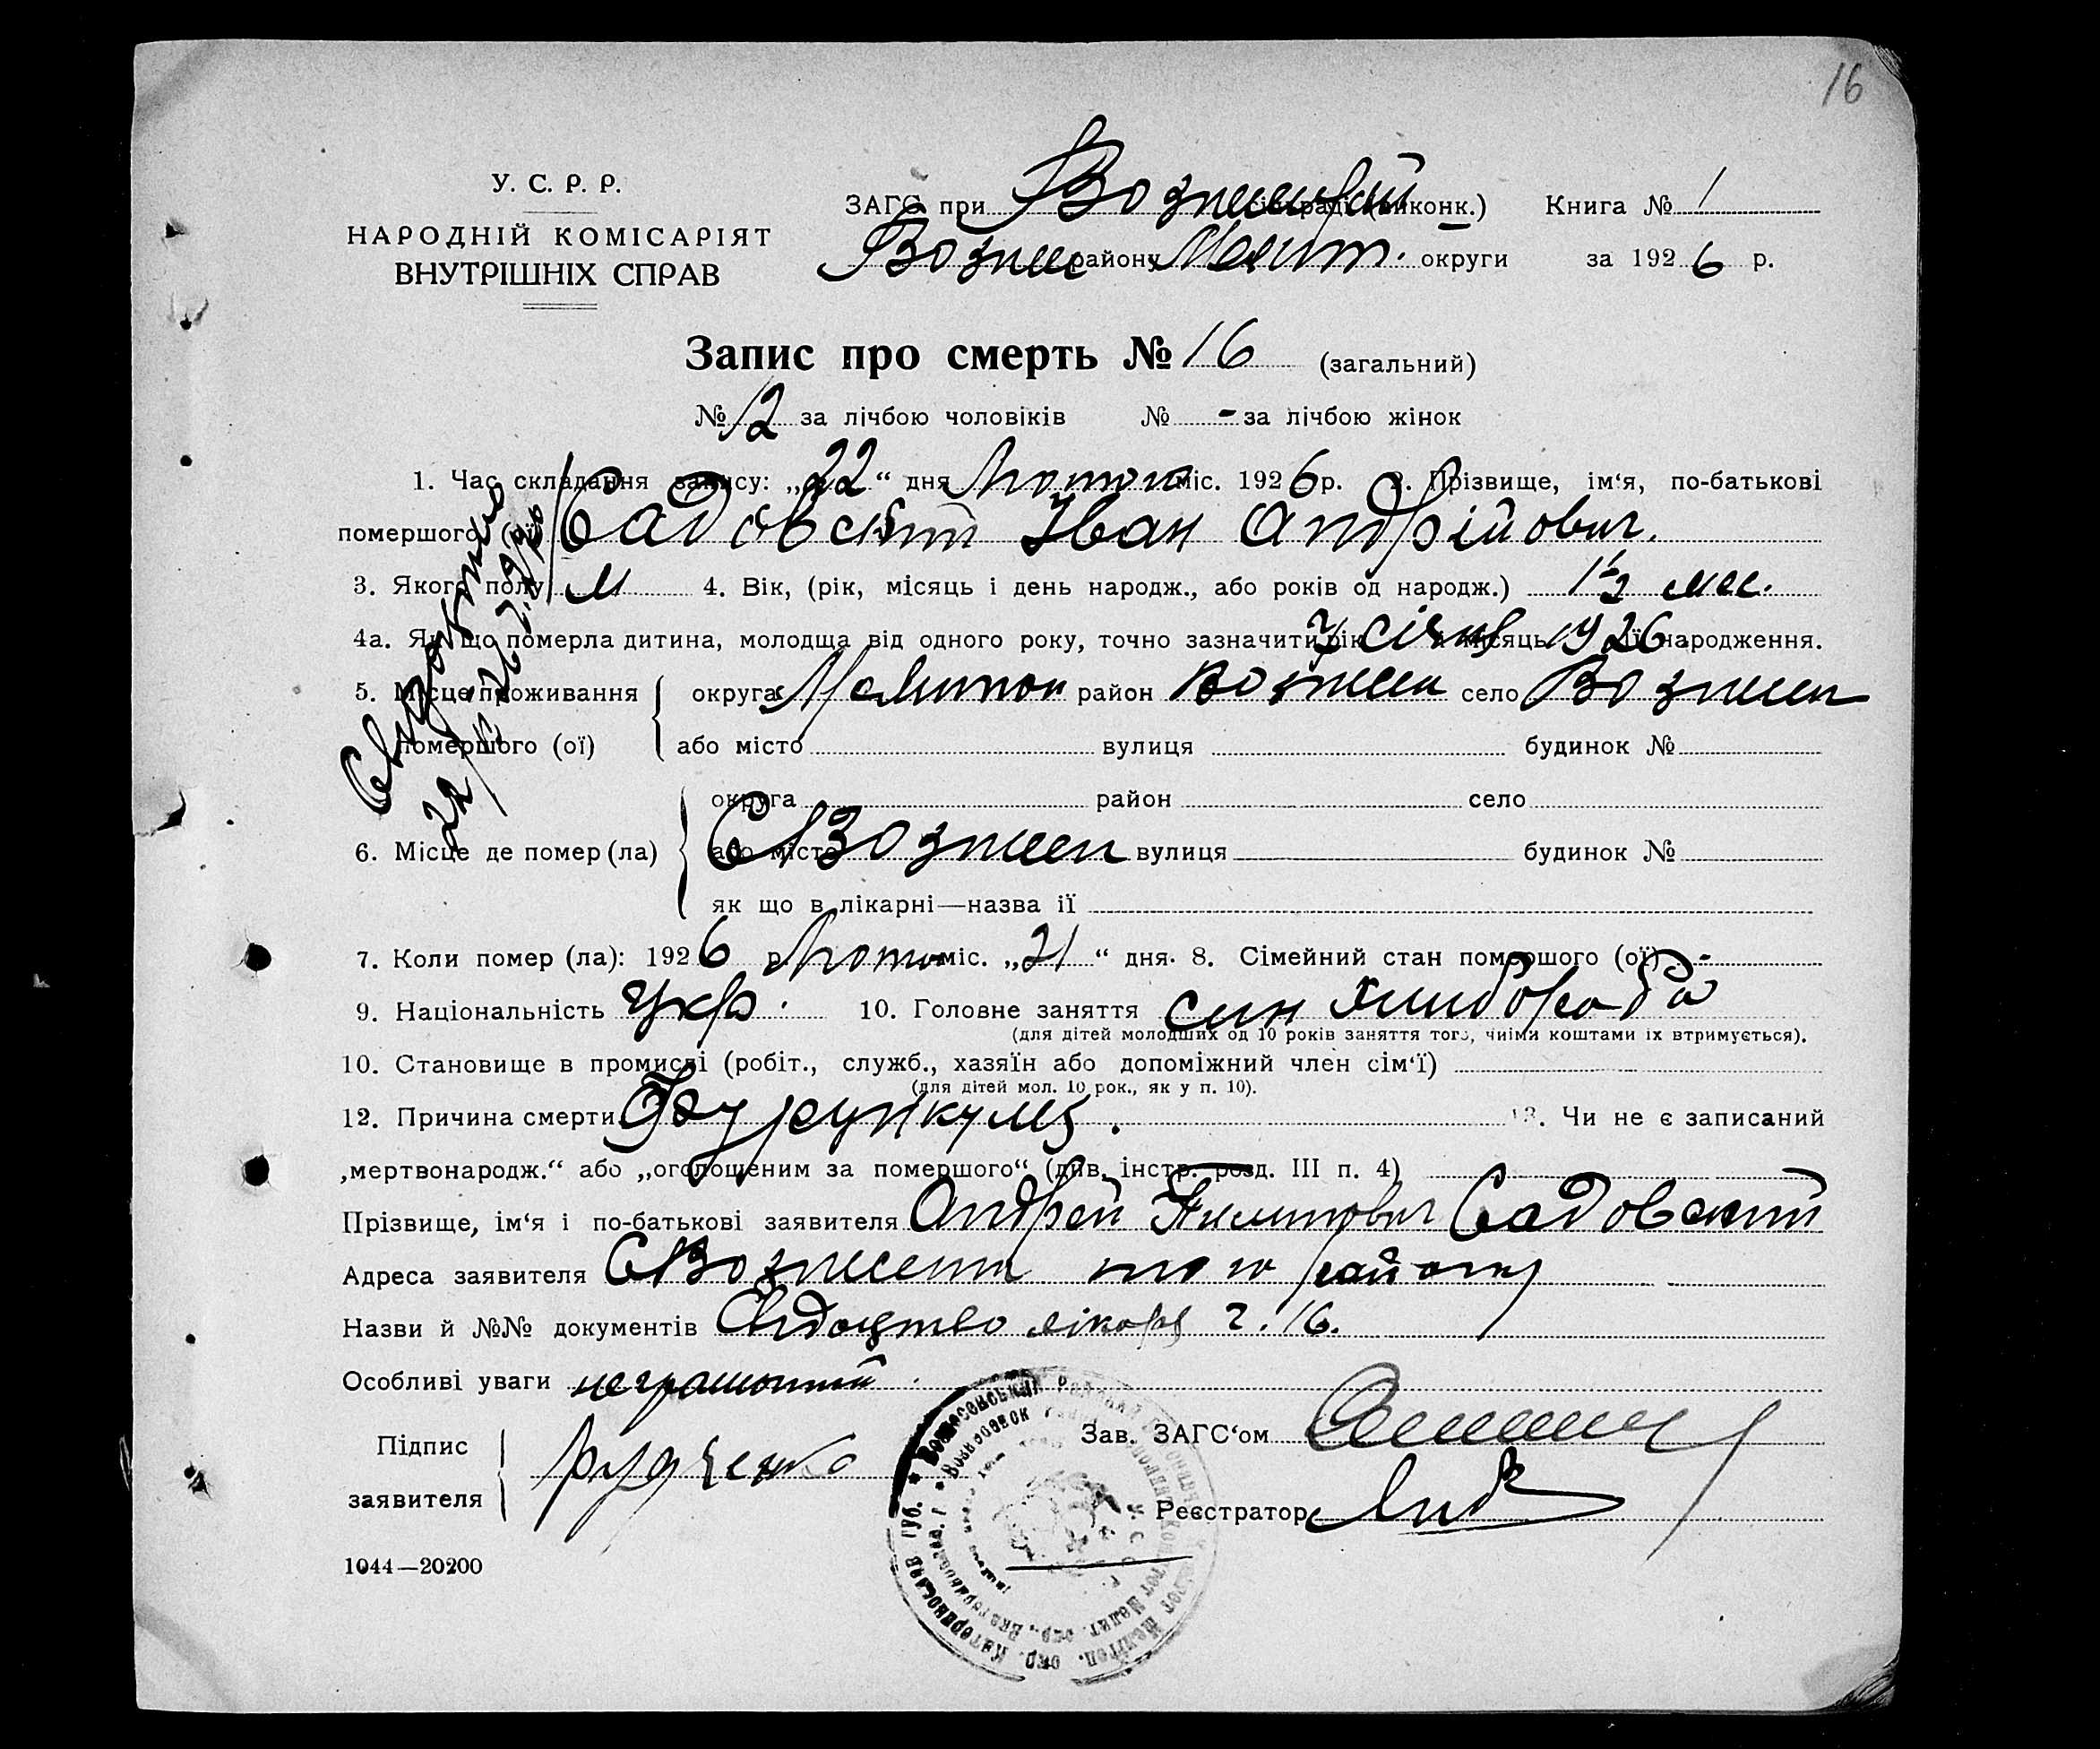 16
У. С. Р. Р.
НАРОДНІЙ КОМІСАРІЯТ
ВНУТРІШНІХ СПРАВ
ЗАГС при (виконк.) Книга № 1
Вознес району Меліт. округи за 1926 р.
Запис про смерть № 16 (загальний)
№ 12 за лічбою чоловіків № - за лічбою жінок
1. Час складання запису: „22“ дня Лютого міс. 1926 р. 2. Прізвище, ім‘я, по-батькові
помершого (ої) Садовський Іван Андрійович.
3. Якого полу М 4. Вік, (рік, місяць і день народж., або років од народж.) 1½ мес.
4а. Як що померла дитина, молодща від одного року, точно зазначити рік й місяць її народження. 7 січня 1926
5. Місце проживання округа Мелитоп район Вознесен село Вознесен
помершого (ої) або місто вулиця будинок №
округа район село
6. Місце де помер (ла) або місто С Вознесен вулиця будинок №
як що в лікарні—назва ії
7. Коли помер (ла): 1926 р. Лютого міс. „21“ дня. 8. Сімейний стан помершого (ої) -
9. Національність Укр. 10. Головне заняття син хлибороба
(для дітей молодших од 10 років заняття того, чиїми коштами їх втримується).
10. Становище в промислі (робіт., служб., хазяїн або допоміжний член сім‘ї)
(для дітей мол. 10 рок., як у п. 10).
12. Причина смерти Фурункулз. 13. Чи не є записаний
„мертвонародж.“ або „оголошеним за помершого“ (див. інстр. розд. III п. 4)
Прізвище, ім‘я і по-батькові заявителя Андрей Садовский
Адреса заявителя С Вознесенка того району
Назви й №№ документів Свідоцтво лікаря г. 16.
Особливі уваги неграмотний.
Підпис
заявителя Рудченко
Зав. ЗАГС‘ом
Реєстратор
1044—20200